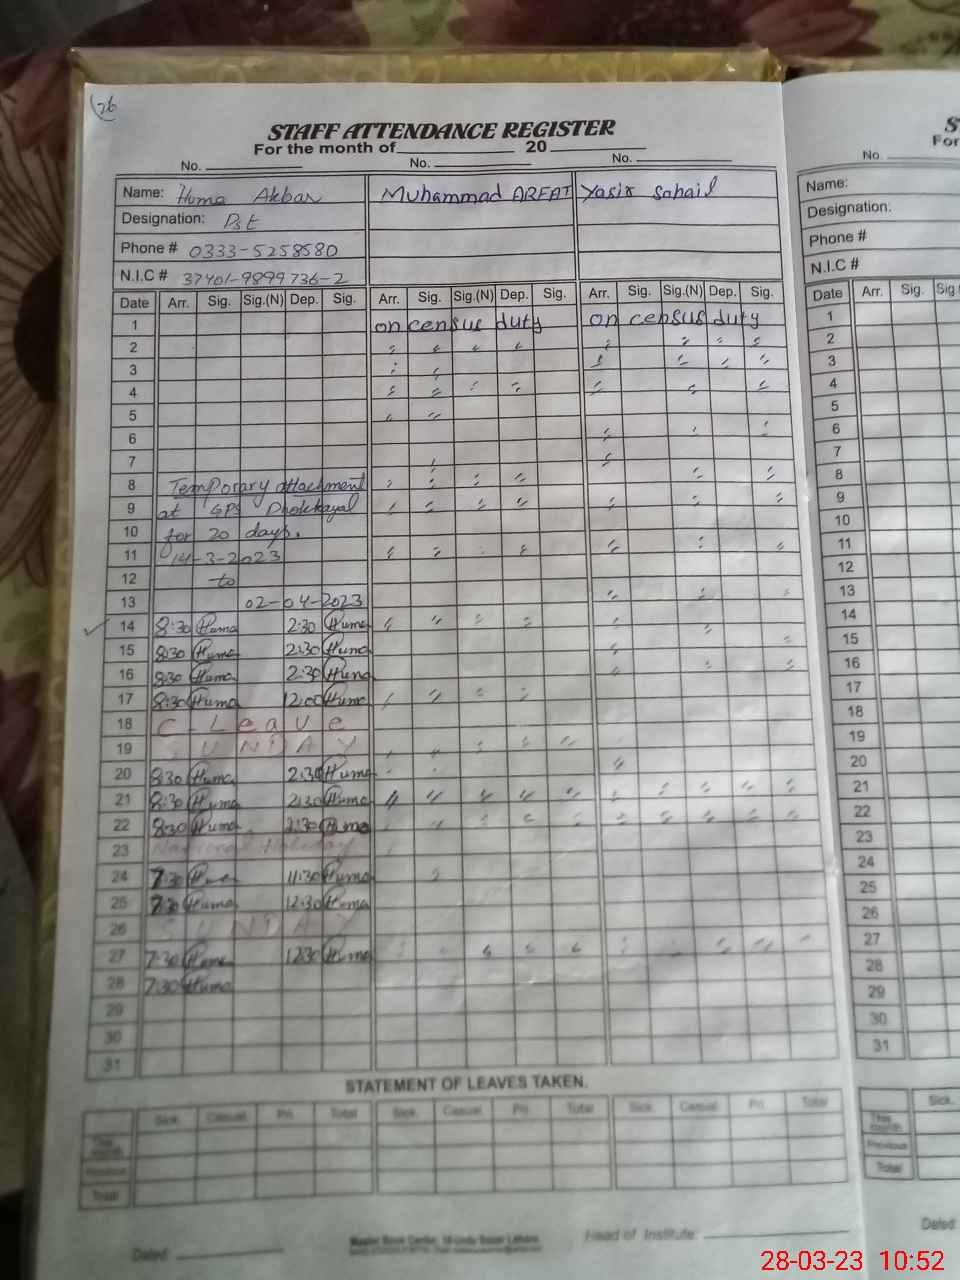 26
STAFF ATTENDANCE REGISTER
For the month of 20
No. No. No.
Name: Huma Akbar Muhammad ARFAT Yasir Sohail
Designation: Pst
Phone # 0333-5258580
N.I.C # 37401-9899736-2
Date Arr. Sig. Sig.(N) Dep. Sig. Arr. Sig. Sig.(N) Dep. Sig. Arr. Sig. Sig.(N) Dep. Sig.
1 on census duty on census duty
2
3
4
5
6
7
8 Temporary attachment
9 at GPS Dhokkayal
10 for 20 days.
11 14-3-2023
12 to
13 02-04-2023
14 8:30 Huma 2:30 Huma
15 8:30 Huma 2:30 Huma
16 8:30 Huma 2:30 Huma
17 8:30 Huma 12:00 Huma
18 C-Leave
19 SUNDAY
20 8:30 Huma 2:30 Huma
21 8:30 Huma 2:30 Huma
22 8:30 Huma 2:30 Huma
23 National Holiday
24 7:30 Huma 11:30 Huma
25 7:30 Huma 12:30 Huma
26 SUNDAY
27 7:30 Huma 12:30 Huma
28 7:30 Huma
29
30
31
STATEMENT OF LEAVES TAKEN.
Sick. Casual. Pri. Total Sick. Casual. Pri. Total Sick. Casual. Pri. Total
This month
Previous
Total
Dated: Master Book Center, Urdu Bazar Lahore. Head of Institute:
S
For
No.
Name:
Designation:
Phone #
N.I.C #
Date Arr. Sig. Sig.
1
2
3
4
5
6
7
8
9
10
11
12
13
14
15
16
17
18
19
20
21
22
23
24
25
26
27
28
29
30
31
Sick.
This month
Previous
Total
Dated:
28-03-23 10:52